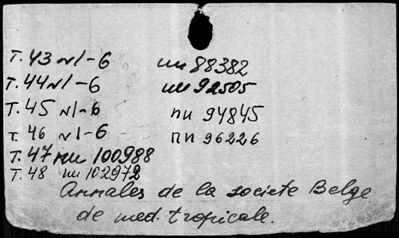 т. 43 №1-6 ин 88382
т. 44 №1-6 ин 92505
т. 45 №1-6 пн 94845
т. 46 №1-6 пн 96226
т. 47 ин 100988
т. 48 ин 102972
Annales de la societe Belge
de med. tropicale.